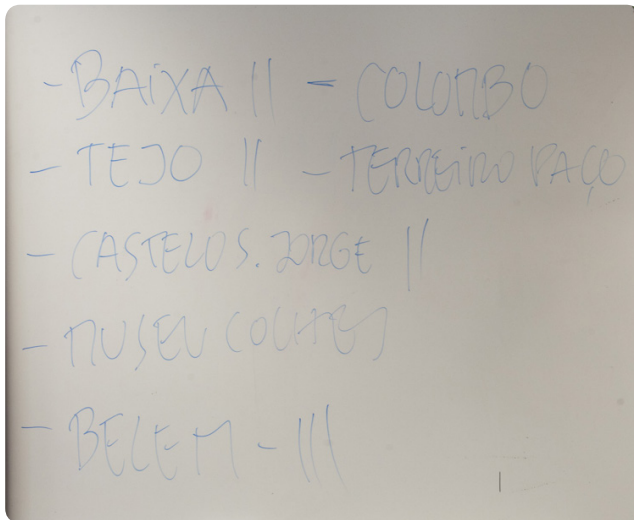 - BAIXA || - COLOMBO
- TEJO || - TERREIRO PAÇO
- CASTELO S. JORGE ||
- MUSEU COCHES
- BELEM - |||